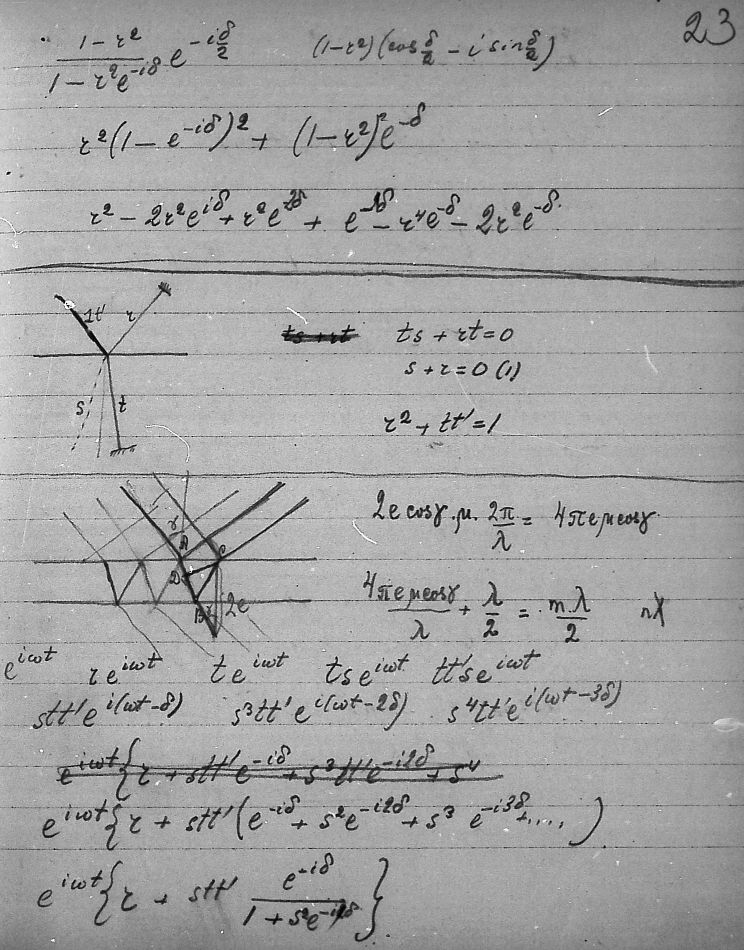 23
1-r²/1-r²e^-iδ e^-iδ/2 (1-r²)(cos δ/2 - i sin δ/2)
r²(1-e^-iδ)² + (1-r²)²e^-δ
r² - 2r²e^iδ + r²e^2δ + e^-δ - r⁴e^-δ - 2r²e^-δ
1 t' r
ts + rt ts + rt = 0
s + r = 0 (1)
s t
r² + tt' = 1
2e cosγ.μ. 2π/λ = 4πeμcosγ
γ A C
D
B 2e
4πeμcosγ/λ + λ/2 = m.λ/2
e^iωt re^iωt te^iωt tse^iωt tt'se^iωt
stt'e^i(ωt-δ) s³tt'e^i(ωt-2δ) s⁴tt'e^i(ωt-3δ)
e^iωt{r + stt'e^-iδ + s³tt'e^-i2δ + s⁴
e^iωt{r + stt'(e^-iδ + s²e^-i2δ + s³ e^-i3δ+....)
e^iωt{r + stt' e^-iδ/1+s²e^-iδ}